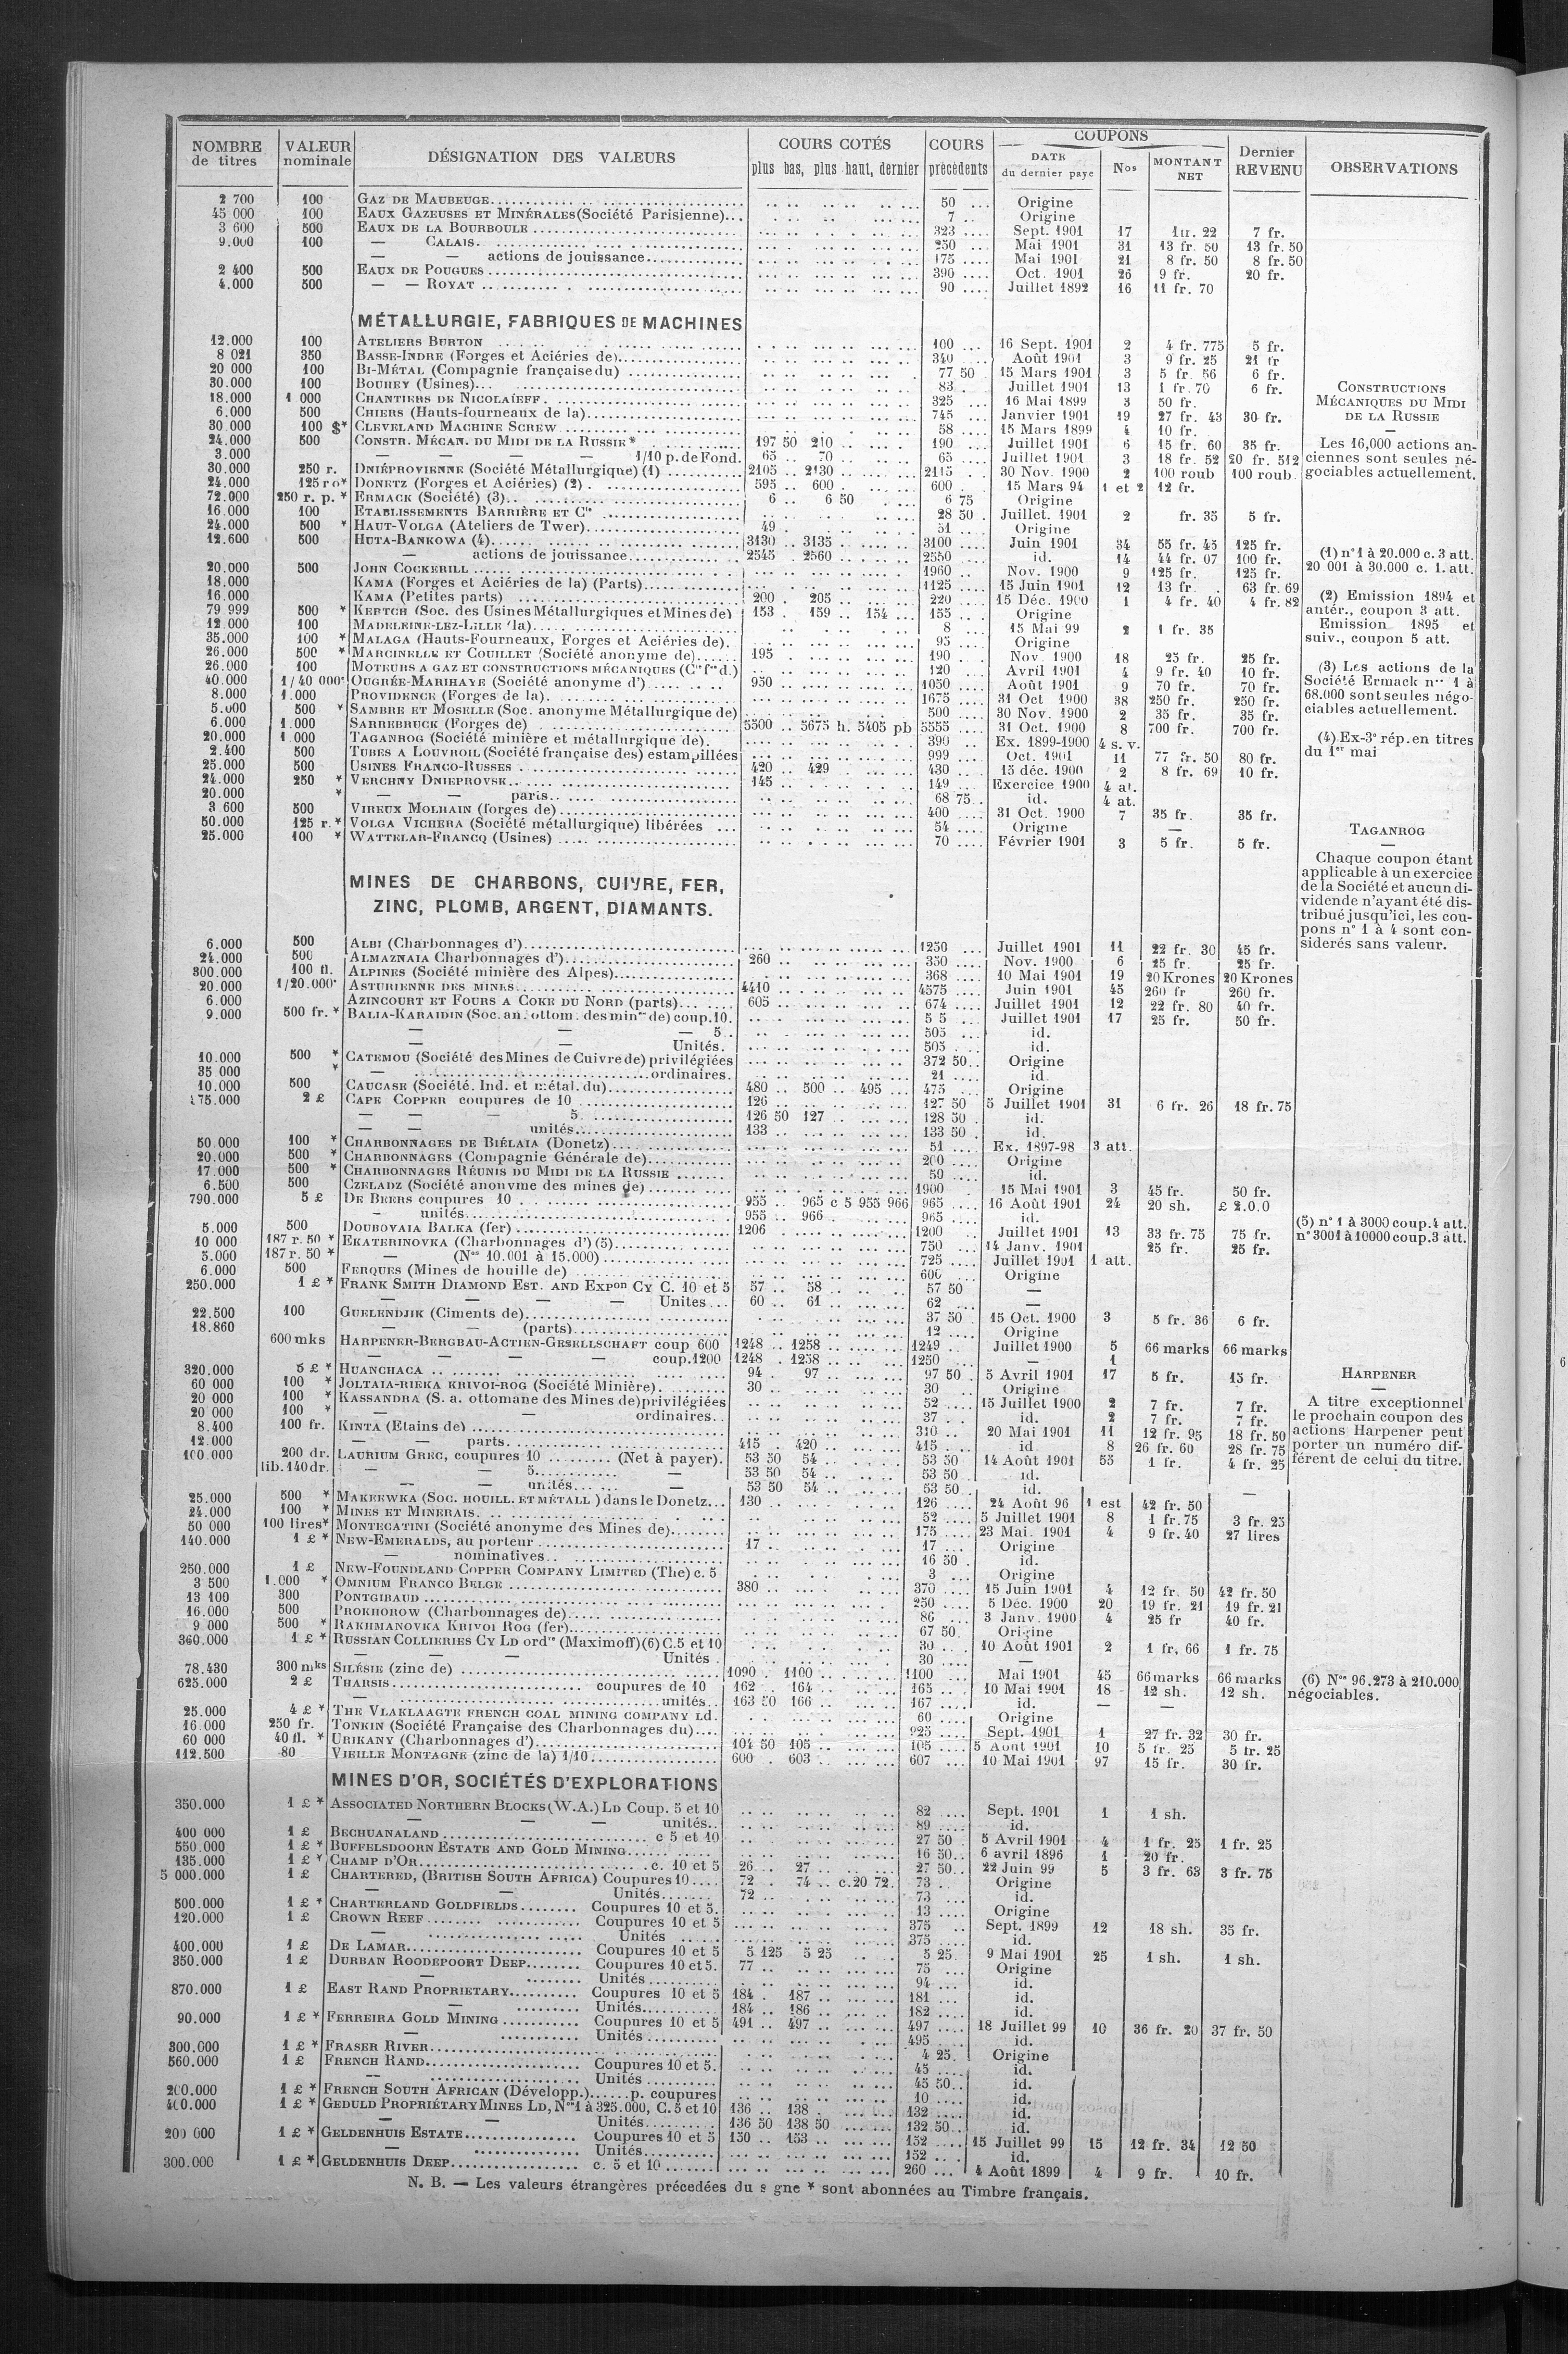 NOMBRE de titres | VALEUR nominale | DÉSIGNATION DES VALEURS | COURS COTÉS plus bas, plus haut, dernier | COURS précédents | COUPONS DATE du dernier payé | Nos | MONTANT NET | Dernier REVENU | OBSERVATIONS
2 700 100 GAZ DE MAUBEUGE 50 Origine
45 000 100 EAUX GAZEUSES ET MINÉRALES (Société Parisienne) 7 Origine
3 600 500 EAUX DE LA BOURBOULE 323 Sept. 1901 17 22 7 fr.
9.000 100 — CALAIS 250 Mai 1901 31 13 fr. 50 13 fr. 50
— — actions de jouissance 175 Mai 1901 21 8 fr. 50 8 fr. 50
2 400 500 EAUX DE POUGUES 390 Oct. 1901 26 9 fr. 20 fr.
4.000 500 — — ROYAT 90 Juillet 1892 16 11 fr. 70
MÉTALLURGIE, FABRIQUES DE MACHINES
12.000 100 ATELIERS BURTON 100 16 Sept. 1901 2 4 fr. 775 5 fr.
8 021 350 BASSE-INDRE (Forges et Aciéries de) 340 Août 1901 3 9 fr. 25 21 fr
20 000 100 BI-MÉTAL (Compagnie française du) 77 50 15 Mars 1901 3 5 fr. 56 6 fr.
30.000 100 BOUHEY (Usines) 83 Juillet 1901 13 1 fr. 70 6 fr.
18.000 1 000 CHANTIERS DE NICOLAÏEFF 325 16 Mai 1899 3 50 fr.
6.000 500 CHIERS (Hauts-fourneaux de la) 745 Janvier 1901 19 27 fr. 43 30 fr.
30 000 100 $* CLEVELAND MACHINE SCREW 58 15 Mars 1899 4 10 fr.
24.000 500 CONSTR. MÉCAN. DU MIDI DE LA RUSSIE* 197 50 210 190 Juillet 1901 6 15 fr. 60 35 fr.
3.000 — — — — 1/10 p. de Fond. 65 70 65 Juillet 1901 3 18 fr. 52 20 fr. 512
30.000 250 r. DNIÉPROVIENNE (Société Métallurgique) (1) 2105 2130 2115 30 Nov. 1900 2 100 roub 100 roub.
24.000 125 ro* DONETZ (Forges et Aciéries) (2) 595 600 600 15 Mars 94 1 et 2 12 fr.
72.000 250 r. p. * ERMACK (Société) (3) 6 6 50 6 75 Origine
16.000 100 ETABLISSEMENTS BARRIÈRE ET Cie 28 50 Juillet. 1901 2 fr. 35 5 fr.
24.000 500 * HAUT-VOLGA (Ateliers de Twer) 49 51 Origine
12.600 500 HUTA-BANKOWA (4) 3130 3135 3100 Juin 1901 34 55 fr. 43 125 fr.
— actions de jouissance 2545 2560 2550 id. 14 44 fr. 07 100 fr.
20.000 500 JOHN COCKERILL 1960 Nov. 1900 9 125 fr. 125 fr.
18.000 KAMA (Forges et Aciéries de la) (Parts) 1125 15 Juin 1901 12 13 fr. 63 fr. 69
16.000 KAMA (Petites parts) 200 205 220 15 Déc. 1900 1 4 fr. 40 4 fr. 82
79 999 500 * KERTCH (Soc. des Usines Métallurgiques et Mines de) 153 159 154 155 Origine
12.000 100 MADELEINE-LEZ-LILLE (la) 8 15 Mai 99 2 1 fr. 35
35.000 100 * MALAGA (Hauts-Fourneaux, Forges et Aciéries de) 95 Origine
26.000 500 * MARCINELLE ET COUILLET (Société anonyme de) 195 190 Nov. 1900 18 25 fr. 25 fr.
26.000 100 MOTEURS A GAZ ET CONSTRUCTIONS MÉCANIQUES (Cie fse d.) 120 Avril 1901 4 9 fr. 40 10 fr.
40.000 1/40 000e OUGRÉE-MARIHAYE (Société anonyme d') 950 1050 Août 1901 9 70 fr. 70 fr.
8.000 1.000 PROVIDENCE (Forges de la) 1675 31 Oct 1900 38 250 fr. 250 fr.
5.000 500 * SAMBRE ET MOSELLE (Soc. anonyme Métallurgique de) 500 30 Nov. 1900 2 35 fr. 35 fr.
6.000 1.000 SARREBRUCK (Forges de) 5500 5675 h. 5405 pb 5555 31 Oct. 1900 8 700 fr. 700 fr.
20.000 1.000 TAGANROG (Société minière et métallurgique de) 390 Ex. 1899-1900 4 s. v.
2.400 500 TUBES A LOUVROIL (Société française des) estampillées 999 Oct. 1901 11 77 fr. 50 80 fr.
25.000 500 USINES FRANCO-RUSSES 420 429 430 15 déc. 1900 2 8 fr. 69 10 fr.
24.000 250 * VERCHNY DNIEPROVSK 145 149 Exercice 1900 4 at.
20.000 * — — parts 68 75 id. 4 at.
3 600 500 VIREUX MOLHAIN (forges de) 400 31 Oct. 1900 7 35 fr. 35 fr.
50.000 125 r. * VOLGA VICHERA (Société métallurgique) libérées 54 Origine —
25.000 100 * WATTELAR-FRANCQ (Usines) 70 Février 1901 3 5 fr. 5 fr.
CONSTRUCTIONS
MÉCANIQUES DU MIDI
DE LA RUSSIE
—
Les 16,000 actions an-
ciennes sont seules né-
gociables actuellement.
(1) n° 1 à 20.000 c. 3 att.
20 001 à 30.000 c. 1. att.
(2) Emission 1894 et
antér., coupon 3 att.
Emission 1895 et
suiv., coupon 5 att.
(3) Les actions de la
Société Ermack nos 1 à
68.000 sont seules négo-
ciables actuellement.
(4) Ex-3e rép. en titres
du 1er mai
TAGANROG
—
Chaque coupon étant
applicable à un exercice
de la Société et aucun di-
vidende n'ayant été dis-
tribué jusqu'ici, les cou-
pons n° 1 à 4 sont con-
siderés sans valeur.
MINES DE CHARBONS, CUIVRE, FER,
ZINC, PLOMB, ARGENT, DIAMANTS.
6.000 500 ALBI (Charbonnages d') 1250 Juillet 1901 11 22 fr. 30 45 fr.
24.000 500 ALMAZNAIA Charbonnages d') 260 350 Nov. 1900 6 25 fr. 25 fr.
300.000 100 fl. ALPINES (Société minière des Alpes) 368 10 Mai 1901 19 20 Krones 20 Krones
20.000 1/20.000e ASTURIENNE DES MINES 4410 4575 Juin 1901 45 260 fr 260 fr.
6.000 AZINCOURT ET FOURS A COKE DU NORD (parts) 605 674 Juillet 1901 12 22 fr. 80 40 fr.
9.000 500 fr. * BALIA-KARAIDIN (Soc. an. ottom. des mines de) coup. 10. 5 5 Juillet 1901 17 25 fr. 50 fr.
— — — 5. 505 id.
— — Unités. 505 id.
10.000 500 * CATEMOU (Société des Mines de Cuivre de) privilégiées 372 50 Origine
35 000 * — ordinaires. 21 id.
10.000 500 CAUCASE (Société. Ind. et métal. du) 480 500 495 475 Origine
175.000 2 £ CAPE COPPER coupures de 10 126 127 50 5 Juillet 1901 31 6 fr. 26 18 fr. 75
— — — 5. 126 50 127 128 50 id.
— — unités 133 133 50 id.
50.000 100 * CHARBONNAGES DE BIÉLAIA (Donetz) 51 Ex. 1897-98 3 att.
20.000 500 * CHARBONNAGES (Compagnie Générale de) 200 Origine
17.000 500 * CHARBONNAGES RÉUNIS DU MIDI DE LA RUSSIE 50 id.
6.500 500 CZELADZ (Société anonyme des mines de) 1900 15 Mai 1901 3 45 fr. 50 fr.
790.000 5 £ DE BEERS coupures 10 955 965 c 5 955 966 965 16 Août 1901 24 20 sh. £ 2.0.0
— unités 955 966 965 id.
5.000 500 DOUBOVAIA BALKA (fer) 1206 1200 Juillet 1901 13 33 fr. 75 75 fr.
10 000 187 r. 50 * EKATERINOVKA (Charbonnages d') (5) 750 14 Janv. 1901 25 fr. 25 fr.
5.000 187 r. 50 * — (Nos 10.001 à 15.000) 725 Juillet 1901 1 att.
6.000 500 FERQUES (Mines de houille de) 600 Origine
250.000 1 £ * FRANK SMITH DIAMOND EST. AND EXPon CY C. 10 et 5 57 58 57 50 —
— — — — Unites 60 61 62 —
22.500 100 GUELENDJIK (Ciments de) 37 50 15 Oct. 1900 3 5 fr. 36 6 fr.
18.860 — — (parts) 12 Origine
600 mks HARPENER-BERGBAU-ACTIEN-GESELLSCHAFT coup 600 1248 1258 1249 Juillet 1900 5 66 marks 66 marks
— — — — coup. 1200 1248 1258 1250 — 1
320.000 5 £ * HUANCHACA 94 97 97 50 5 Avril 1901 17 5 fr. 15 fr.
60 000 100 * JOLTAIA-RIÉKA KRIVOI-ROG (Société Minière) 30 30 Origine
20 000 100 * KASSANDRA (S. a. ottomane des Mines de) privilégiées 52 15 Juillet 1900 2 7 fr. 7 fr.
20 000 100 * — — ordinaires 37 id. 2 7 fr. 7 fr.
8.400 100 fr. KINTA (Etains de) 310 20 Mai 1901 11 12 fr. 95 18 fr. 50
12.000 — — parts 415 420 415 id 8 26 fr. 60 28 fr. 75
100.000 200 dr. LAURIUM GREC, coupures 10 (Net à payer) 53 50 54 53 50 14 Août 1901 55 1 fr. 4 fr. 25
lib. 140 dr. — — 5 — 53 50 54 53 50 id.
— — unités — 53 50 54 53 50 id. —
25.000 500 * MAKEEWKA (SOC. HOUILL. ET MÉTALL) dans le Donetz 130 126 24 Août 96 1 est 42 fr. 50
24.000 100 * MINES ET MINERAIS 52 5 Juillet 1901 8 1 fr. 75 3 fr. 25
50 000 100 lires* MONTECATINI (Société anonyme des Mines de) 175 23 Mai. 1901 4 9 fr. 40 27 lires
140.000 1 £ * NEW-EMERALDS, au porteur 17 17 Origine
— nominatives 16 50 id.
250.000 1 £ NEW-FOUNDLAND COPPER COMPANY LIMITED (The) c. 5 3 Origine
3 500 1.000 * OMNIUM FRANCO BELGE 380 370 15 Juin 1901 4 12 fr. 50 42 fr. 50
13 100 300 PONTGIBAUD 250 5 Déc. 1900 20 19 fr. 21 19 fr. 21
16.000 500 PROKHOROW (Charbonnages de) 86 3 Janv. 1900 4 25 fr 40 fr.
9 000 500 * RAKHMANOVKA KRIVOI ROG (fer) 67 50 Origine
360.000 1 £ * RUSSIAN COLLIERIES CY LD ordres (Maximoff) (6) C. 5 et 10 30 10 Août 1901 2 1 fr. 66 1 fr. 75
— — — Unités 30 —
78.430 300 mks SILÉSIE (zinc de) 1090 1100 1100 Mai 1901 45 66 marks 66 marks
625.000 2 £ THARSIS coupures de 10 162 164 165 10 Mai 1901 18 12 sh. 12 sh.
— unités 163 50 166 167 id. — —
25.000 4 £ * THE VLAKLAAGTE FRENCH COAL MINING COMPANY LD. 60 Origine
16.000 250 fr. TONKIN (Société Française des Charbonnages du) 925 Sept. 1901 1 27 fr. 32 30 fr.
60 000 40 fl. * URIKANY (Charbonnages d') 104 50 105 105 5 Août 1901 10 5 fr. 25 5 fr. 25
112.500 80 VIEILLE MONTAGNE (zinc de la) 1/10 600 603 607 10 Mai 1901 97 15 fr. 30 fr.
(5) n° 1 à 3000 coup. 4 att.
n° 3001 à 10000 coup. 3 att.
HARPENER
—
A titre exceptionnel
le prochain coupon des
actions Harpener peut
porter un numéro dif-
férent de celui du titre.
(6) Nos 96.273 à 210.000
négociables.
MINES D'OR, SOCIÉTÉS D'EXPLORATIONS
350.000 1 £ * ASSOCIATED NORTHERN BLOCKS (W.A.) LD Coup. 5 et 10 82 Sept. 1901 1 1 sh.
— — — unités 89 id.
400 000 1 £ BECHUANALAND c 5 et 10 27 50 5 Avril 1901 4 1 fr. 25 1 fr. 25
550.000 1 £ * BUFFELSDOORN ESTATE AND GOLD MINING 16 50 6 avril 1896 1 20 fr.
135.000 1 £ * CHAMP D'OR c. 10 et 5 26 27 27 50 22 Juin 99 5 3 fr. 63 3 fr. 75
5 000.000 1 £ CHARTERED, (BRITISH SOUTH AFRICA) Coupures 10 72 74 c. 20 72 73 Origine
— — Unités 72 73 id.
500.000 1 £ * CHARTERLAND GOLDFIELDS Coupures 10 et 5. 13 Origine
120.000 1 £ CROWN REEF Coupures 10 et 5 375 Sept. 1899 12 18 sh. 35 fr.
— Unités 375 id.
400.000 1 £ DE LAMAR Coupures 10 et 5 5 125 5 25 5 25 9 Mai 1901 25 1 sh. 1 sh.
350.000 1 £ DURBAN ROODEPOORT DEEP Coupures 10 et 5. 77 75 Origine
— Unités 94 id.
870.000 1 £ EAST RAND PROPRIETARY Coupures 10 et 5 184 187 181 id.
— Unités 184 186 182 id.
90.000 1 £ * FERREIRA GOLD MINING Coupures 10 et 5 491 497 497 18 Juillet 99 10 36 fr. 20 37 fr. 50
— Unités 495 id.
300.000 1 £ * FRASER RIVER 4 25 Origine
560.000 1 £ FRENCH RAND Coupures 10 et 5. 45 id.
— Unités 45 50 id.
200.000 1 £ * FRENCH SOUTH AFRICAN (Développ.) p. coupures 10 id.
400.000 1 £ * GEDULD PROPRIÉTARY MINES LD, Nos 1 à 325.000, C. 5 et 10 136 138 132 id.
— — Unités 136 50 138 50 132 50 id.
200 000 1 £ * GELDENHUIS ESTATE Coupures 10 et 5 150 153 152 15 Juillet 99 15 12 fr. 34 12 50
— Unités 152 id.
300.000 1 £ * GELDENHUIS DEEP c. 5 et 10 260 4 Août 1899 4 9 fr. 10 fr.
N. B. — Les valeurs étrangères précedées du s gne * sont abonnées au Timbre français.